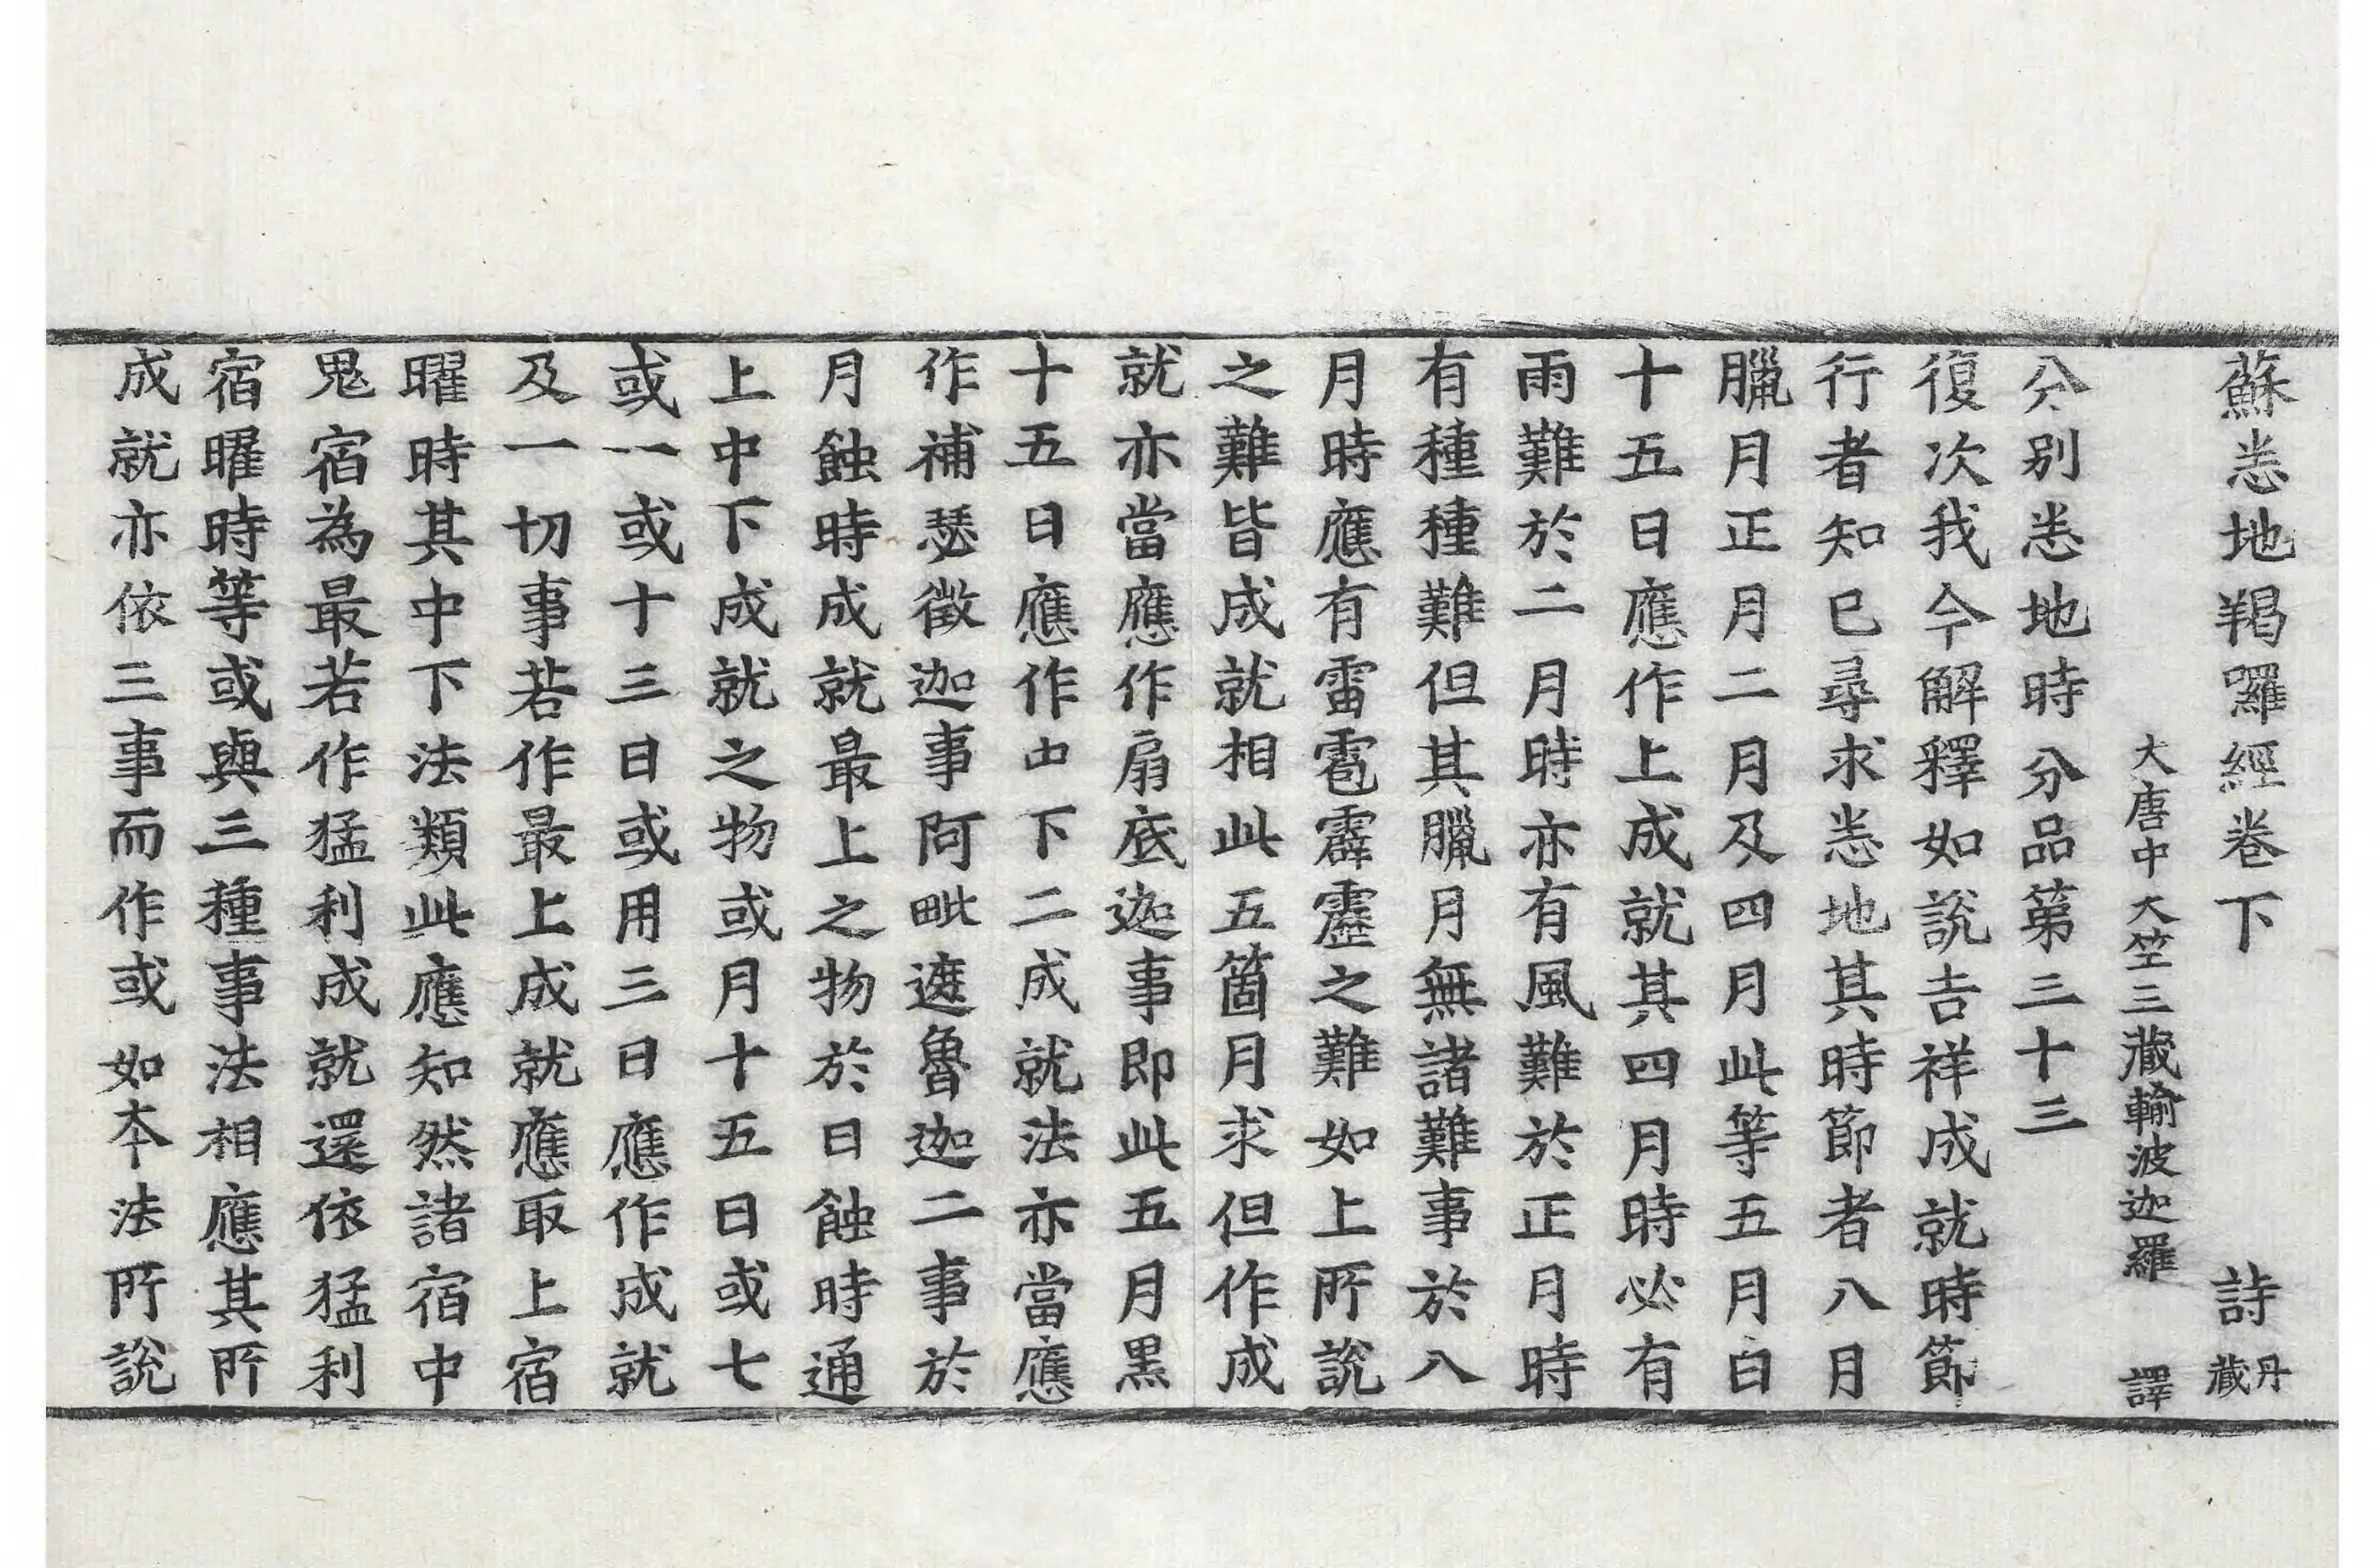 蘇悉地羯囉經卷下 詩 丹藏
大唐中大竺三藏輸波迦羅 譯
分別悉地時分品第三十三
復次我今解釋如說吉祥成就時節
行者知已尋求悉地其時節者八月
臘月正月二月及四月此等五月白
十五日應作上成就其四月時必有
雨難於二月時亦有風難於正月時
有種種難但其臘月無諸難事於八
月時應有雷雹霹靂之難如上所說
之難皆成就相此五箇月求但作成
就亦當應作扇底迦事即此五月黑
十五日應作中下二成就法亦當應
作補瑟徵迦事阿毗遮魯迦二事於
月蝕時成就最上之物於日蝕時通
上中下成就之物或月十五日或七
或一或十三日或用三日應作成就
及一切事若作最上成就應取上宿
曜時其中下法類此應知然諸宿中
鬼宿為最若作猛利成就還依猛利
宿曜時等或與三種事法相應其所
成就亦依三事而作或如本法所說